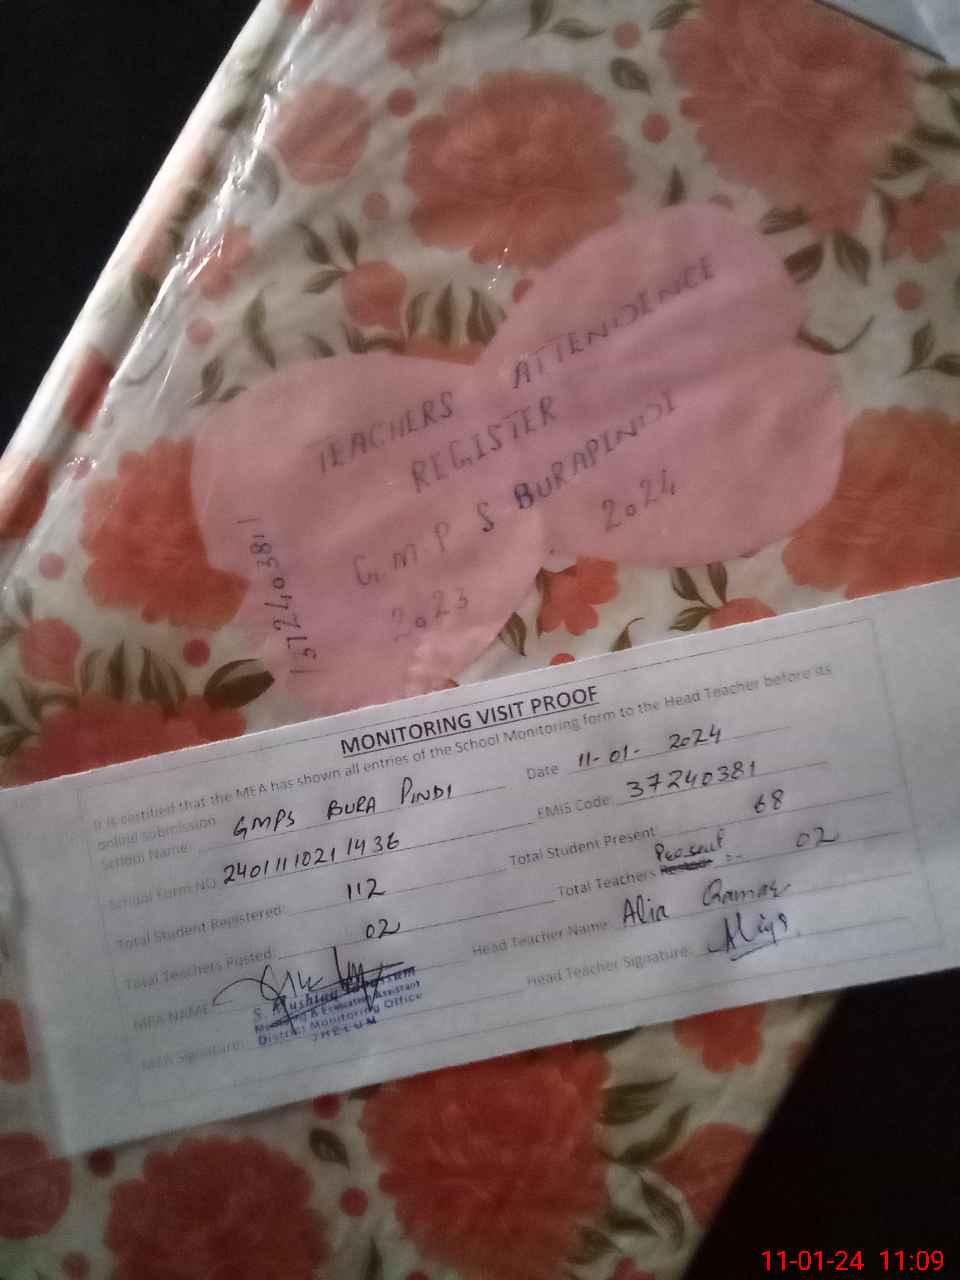 TEACHERS ATTENDENCE
REGISTER
G.M P S BURAPINDI
2023 2024
37240381
MONITORING VISIT PROOF
It is certified that the MEA has shown all entries of the School Monitoring form to the Head Teacher before its
online submission
School Name: GMPS BURA PINDI Date 11-01-2024
School Form NO. 2401111021 1436 EMIS Code: 37240381
Total Student Registered: 112 Total Student Present: 68
Total Teachers Posted: 02 Total Teachers Present 02
MEA NAME: Head Teacher Name: Alia
MEA Signature: Head Teacher Signature:
S. Mushtaq Tabassum
Monitoring & Evaluation Assistant
District Monitoring Office
JHELUM
11-01-24 11:09